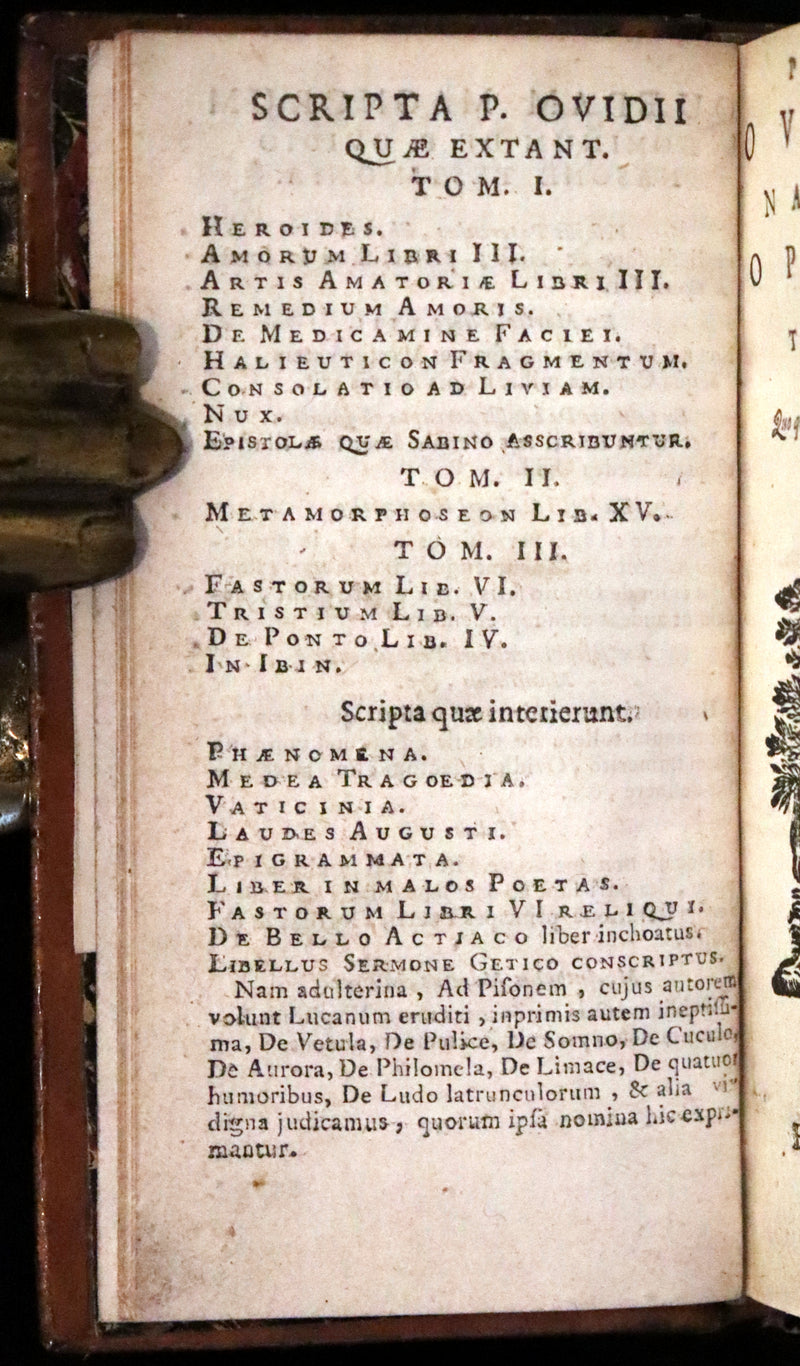 SCRIPTA P. OVIDII
QUÆ EXTANT.
TOM. I.
HEROIDES.
AMORUM LIBRI III.
ARTIS AMATORIÆ LIBRI III.
REMEDIUM AMORIS.
DE MEDICAMINE FACIEI.
HALIEUTICON FRAGMENTUM.
CONSOLATIO AD LIVIAM.
NUX.
EPISTOLÆ QUÆ SABINO ASSCRIBUNTUR.
TOM. II.
METAMORPHOSEON LIB. XV.
TOM. III.
FASTORUM LIB. VI.
TRISTIUM LIB. V.
DE PONTO LIB. IV.
IN IBIN.
Scripta quæ interierunt.
PHÆNOMENA.
MEDEA TRAGOEDIA.
VATICINIA.
LAUDES AUGUSTI.
EPIGRAMMATA.
LIBER IN MALOS POETAS.
FASTORUM LIBRI VI RELIQUI.
DE BELLO ACTIACO liber inchoatus.
LIBELLUS SERMONE GETICO CONSCRIPTUS.
Nam adulterina, Ad Piſonem, cujus autorem
volunt Lucanum eruditi, inprimis autem ineptiſſi-
ma, De Vetula, De Pulice, De Somno, De Cuculo,
De Aurora, De Philomela, De Limace, De quatuor
humoribus, De Ludo latrunculorum, & alia vix
digna judicamus, quorum ipſa nomina hic expri-
mantur.
P
OV
NA
OP
T